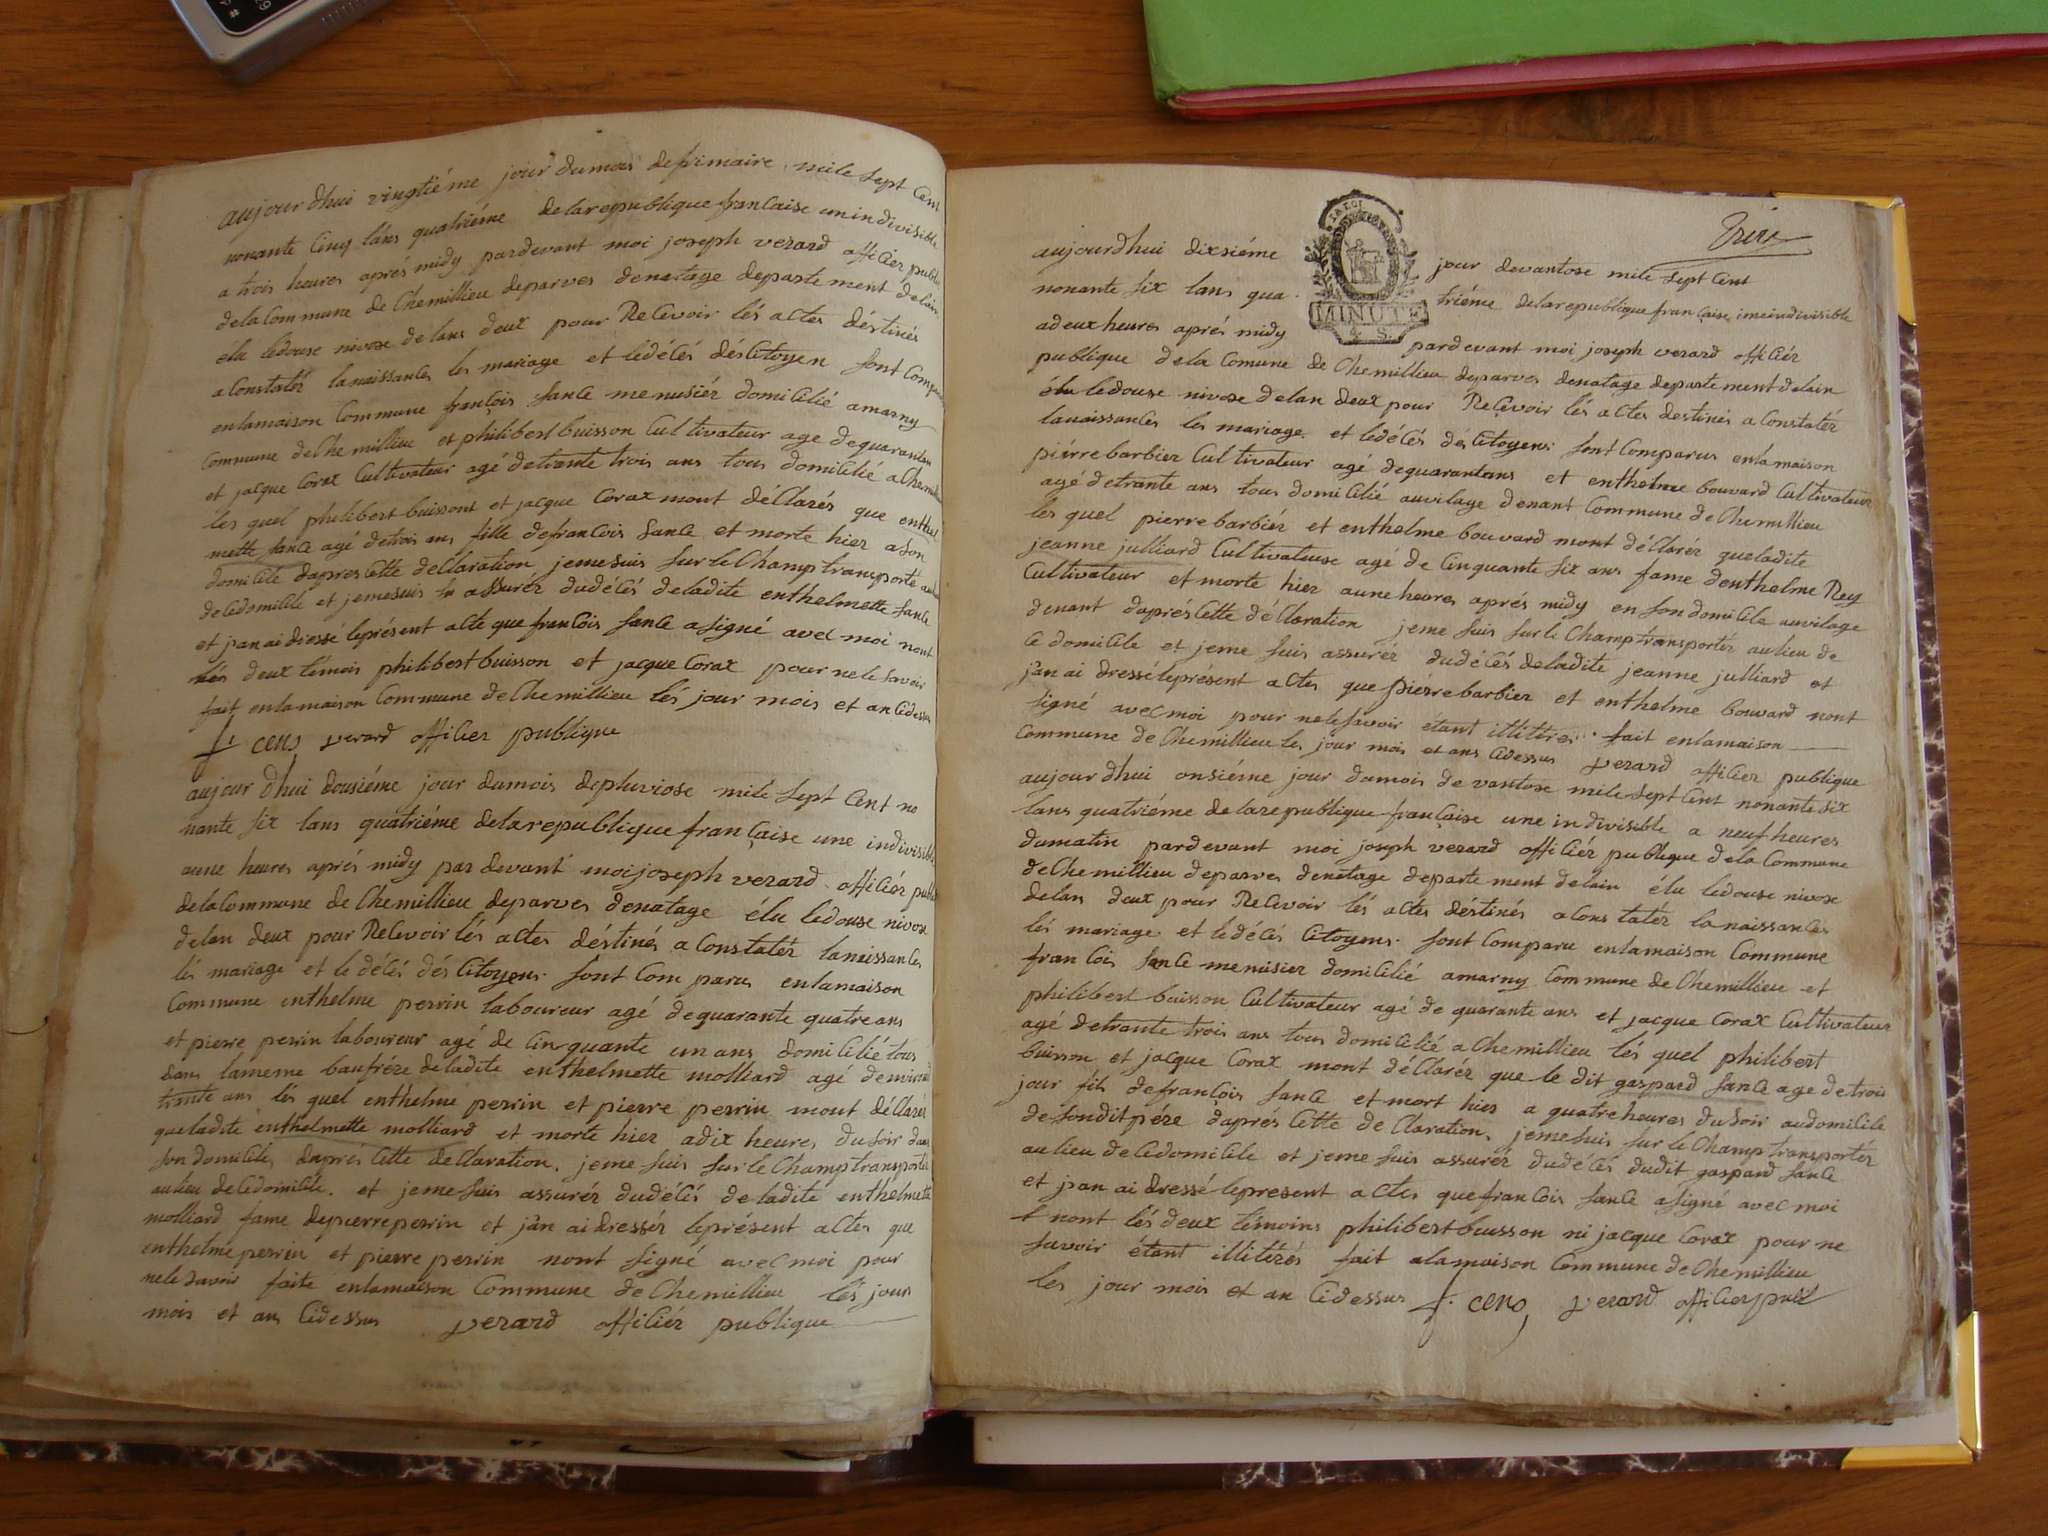 aujourdhui vingtiéme jour dumois defrimaire mile sept Cent
nonante Cinq lans quatriéme delarepublique francaise un indivisible
a trois heures aprés midy pardevant moi joseph verard officiér public
delaCommune de Chemillieu deparves denatage departement delain
élu ledouse nivose delans deux pour ReCevoir lés actes déstinés
aConstatér lanaissances les mariage et ledéCés désCitoyen sont Comparu
enlamaison Commune françois sanCe menusiér domiCilié amarny
Commune deChemillieu et philibert buisson Cultivateur age dequarantan
et jacque Corax Cultivateur agé detrante trois ans tous domiCilié aChemillieu
les quel philibert buissont et jacque Corax mont déClarés que enthel
mette sanCe agé detrois ans fille defranCois sanCe et morte hier ason
domiCile daprescette deClaration jemesuis surleChamp transporté aulieu
deCedomiCile et jemesuis assurér dudéCés deladite enthelmette sanCe
et jan ai dressé leprésent aCte que franCois sanCe asigné aveC moi nont
lés deux témois philibert buisson et jacque Corax pour nele savoir
fait enlamaison Commune deChemillieu lés jour mois et an Cidessus
f. cens verard offiCier publique
aujourdhui dousiéme jour dumois depluviose mile sept Cent no
nante six lans quatriéme delarepublique française une indivisible
aune heures aprés midy par devant moi joseph verard offiCiér public
delaCommune de Chemillieu deparves denatage élu ledouse nivose
delan deux pour ReCevoir lés actes déstinés a Constatér lanaissances
lés mariage et le déCés dés Citoyens sont Com parus enlamaison
Commune enthelme perrin laboureur agé dequarante quatre ans
et pierre perrin laboureur agé de Cinquante un ans domiCilié tous
dans lameme baufrére deladite enthelmette molliard agé denviron
trante ans lés quel enthelme perrin et pierre perrin mont déClarés
queladite enthelmette molliard et morte hier adix heures dusoir dans
son domiCile daprés Cette deClaration jeme suis surleChamp transportér
aulieu deCedomiCile et jemesuis assurér dudéCés deladite enthelmette
molliard fame depierreperrin et jan aidressér leprésent aCtes que
enthelme perrin et pierre perrin nont signé aveCmoi pour
nele savoir faite enlamaison Commune de Chemillieu lés jour
mois et ans Cidessus verard offiCiér publique
aujourdhui dixsiéme jour devantose mile sept Cent
nonante six lans qua triéme delarepublique française uneindivisible
MINUTE
adeuxheures aprés midy pardevant moi joseph verard offiCiér
publique dela Comune de Chemillieu deparves denatage departementdelain
élu ledouse nivose delan deux pour ReCevoir lés actes destinés a Constatér
lanaissances les mariage et ledéCés dés Citoyens sont Comparus enlamaison
piérrebarbiér Cultivateur agé dequarantans et enthelme bouvard Cultivateur
agé detrante ans tous domiCilié auvilage denant Commune de Chemillieu
les quel pierrebarbiér et enthelme bouvard mont déClarér queladite
jeanne julliard Cultivateuse agé de Cinquante six ans fame denthelme Rey
Cultivateur et morte hier auneheures aprés midy en son domiCile auvilage
denant daprésCette déClaration jeme suis surle Champ transportér aulieu de
Ce domiCile et jeme suis assurér dudéCés deladite jeanne julliard et
jan ai dressé leprésent aCtes que piérrebarbier et enthelme bouvard nont
signé aveCmoi pour nelesavoir étant illitirés fait enlamaison
Commune de Chemillieu les jour mois et ans Cidessus verard offiCier publique
aujourdhui onsiéme jour dumois de vantose mile sept Cent nonante six
lans quatriéme de larepublique française une indivisible a neuf heures
dumatin pardevant moi joseph verard offiCiér publique delaCommune
deChemillieu deparves denatage departement delain élu ledouse nivose
delan deux pour ReCevoir lés aCtes déstinés a Constatér lanaissanCes
lés mariage et ledéCés Citoyens sont Comparu enlamaison Commune
franCois sanCe menusier domiCilié amarny Commune de Chemillieu et
philibert buisson Cultivateur agé de quarante ans et jacque Corax Cultivateur
agé detrante trois ans tous domiCilié aChemillieu lés quel philibert
buisson et jacque Corax mont déClarér que le dit gaspard sanCe age detrois
jour fils defrançois sanCe et mort hier a quatre heures dusoir audomiCile
desonditpére daprés Cette de Claration jemesuis sur leChamp transportér
aulieu deCedomiCile et jeme suis assurér dudéCés dudit gaspard sanCe
et jan ai dressé lepresent aCtes quefranCois sanCe asigné aveC moi
nont lés deux témoins philibert buisson ni jacque Corax pour ne
savoir étant illitirés fait alamaison Commune deChemillieu
les jour mois et an Cidessus f. cens verard offiCier publ